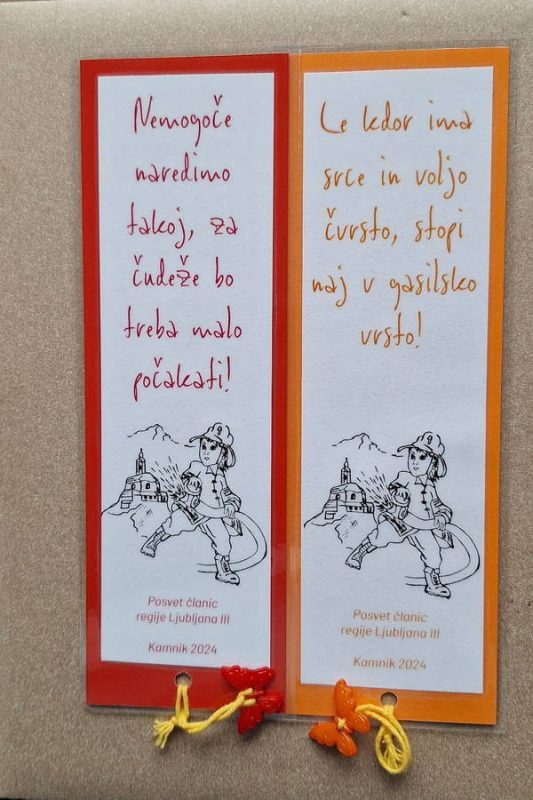 Nemogoče
naredimo
takoj, za
čudeže bo
treba malo
počakati!
Posvet članic
regije Ljubljana III
Kamnik 2024
Le kdor ima
srce in voljo
čvrsto, stopi
naj v gasilsko
vrsto!
Posvet članic
regije Ljubljana III
Kamnik 2024